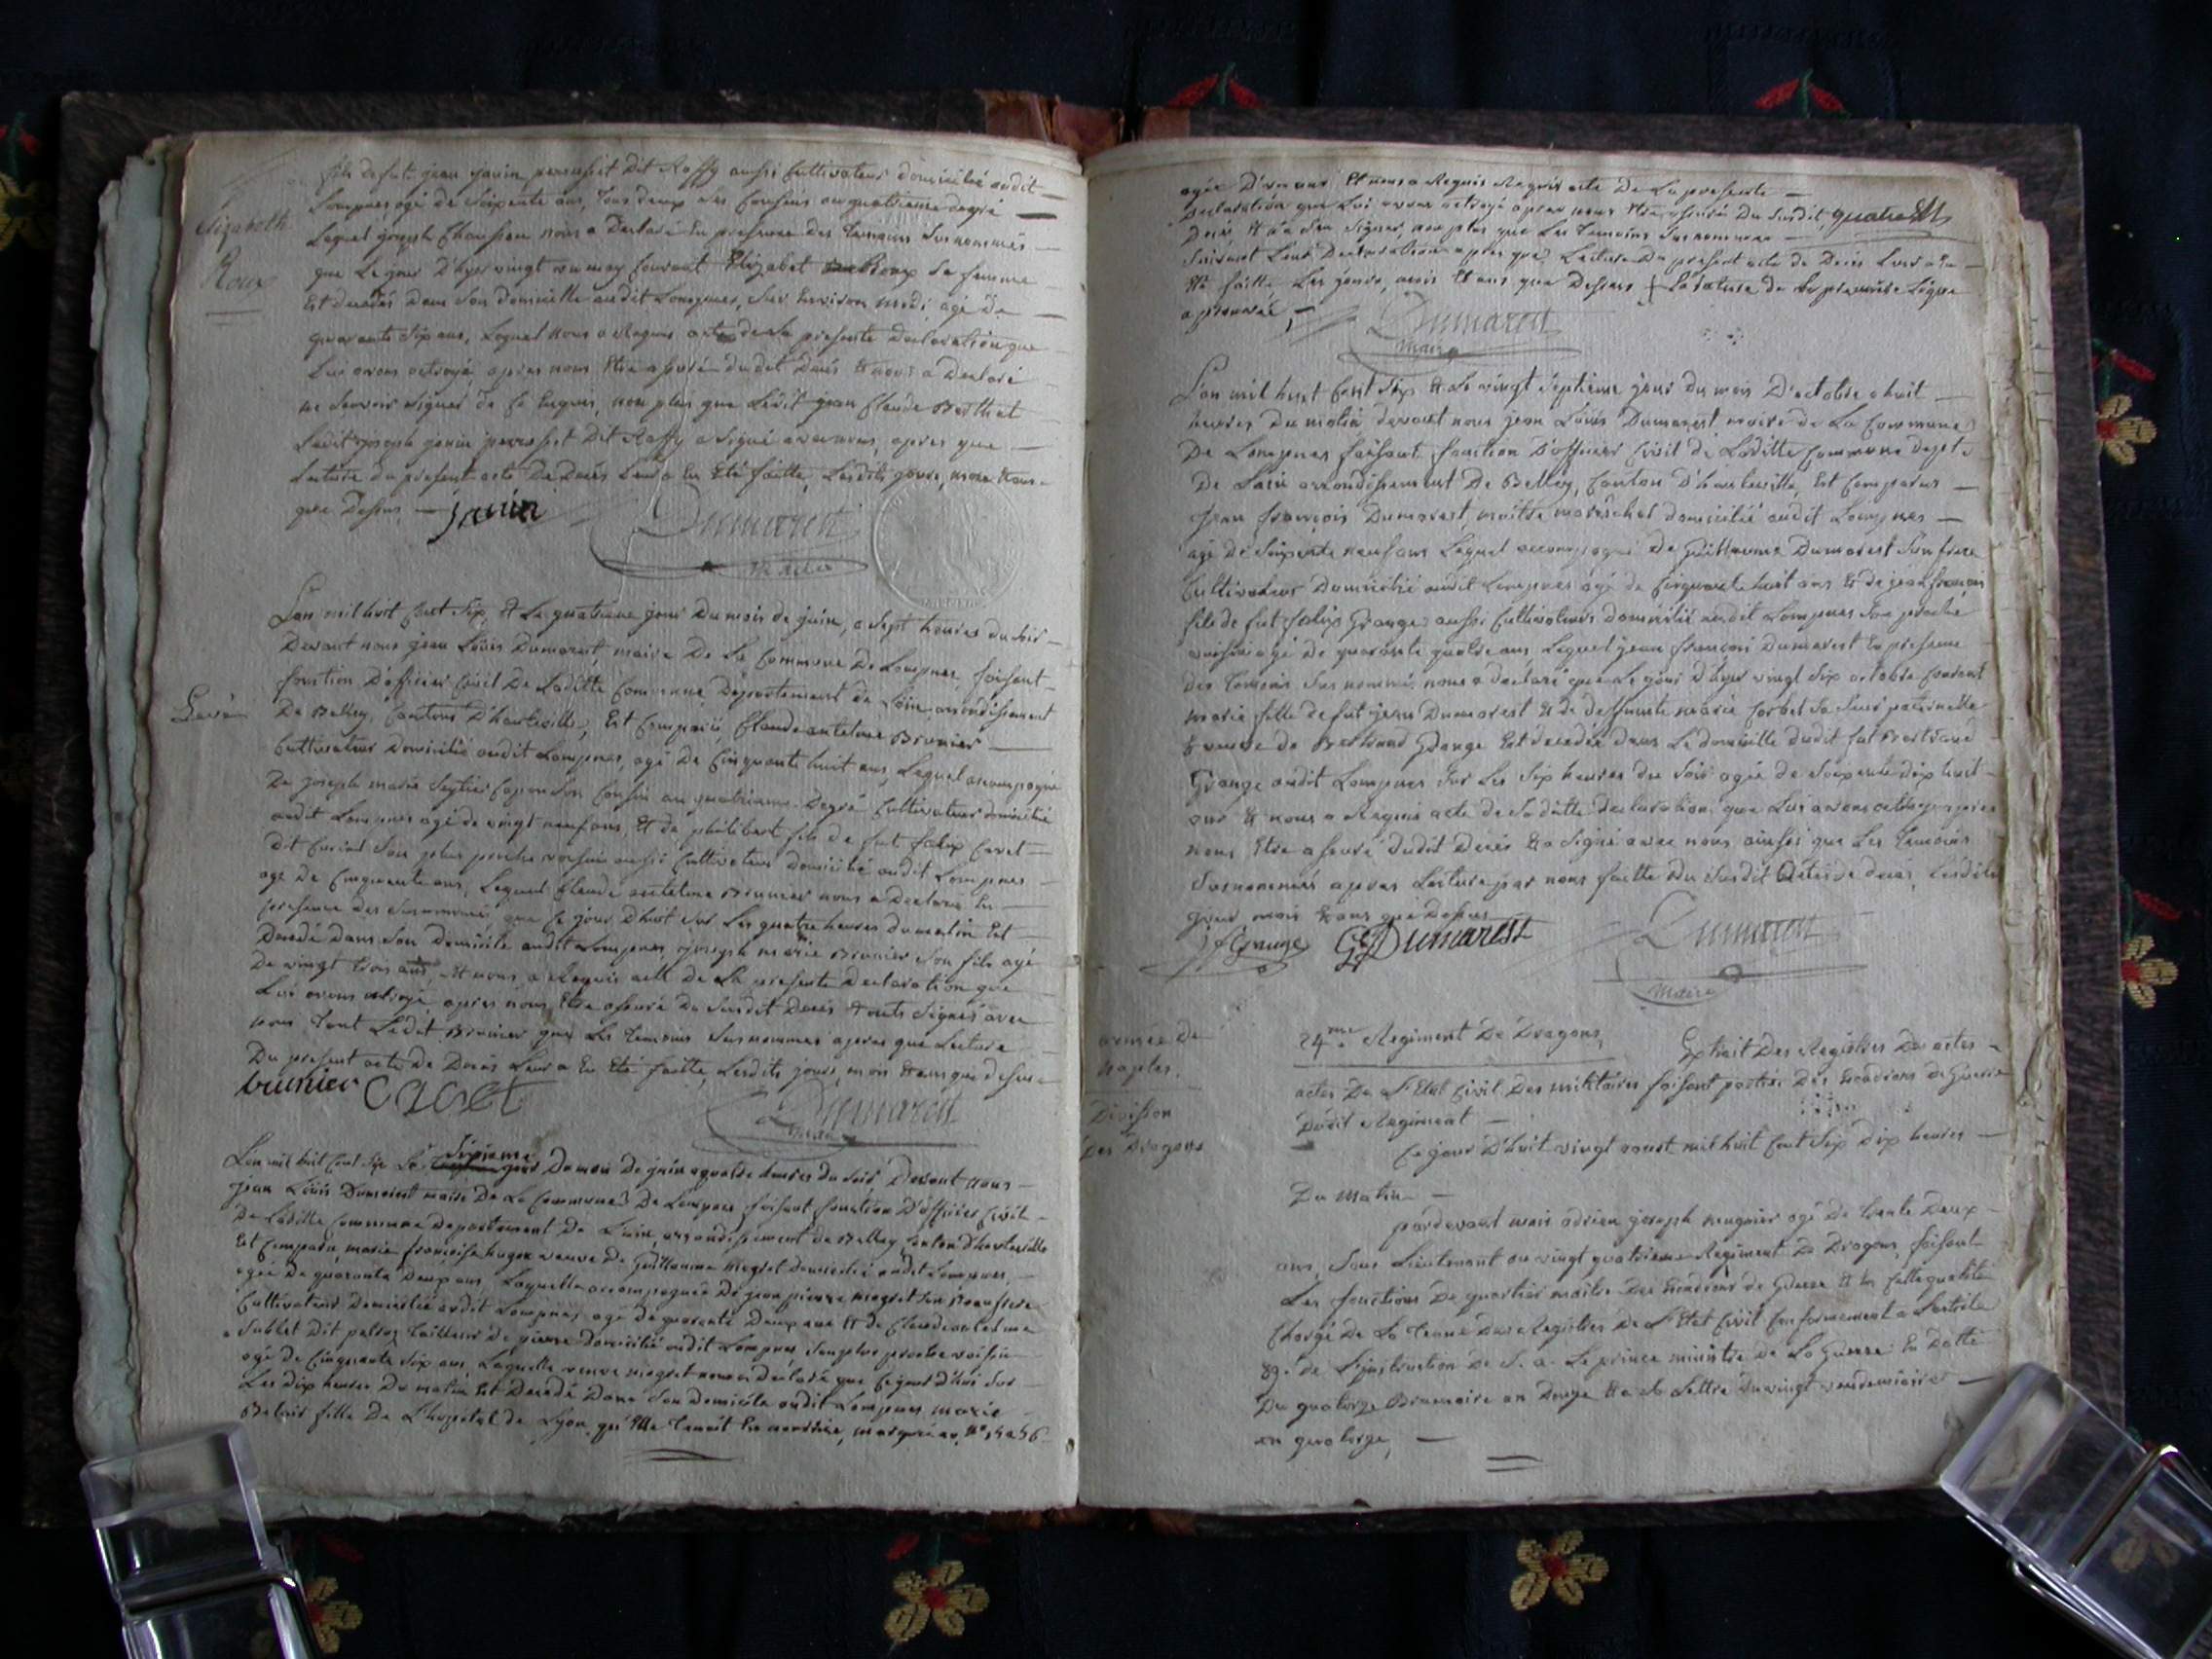 fils de fut jean janin perrosset Dit Raffy aussi Cultivateur domicilié audit
Lompnes agé de Soixente ans, tous deux ses Cousins au quatrieme degré
Elizabeth
Roux
Lequel joseph Chaussieu nous a Declaré En presence des temoins Susnommés
que Le jour D'hyer vingt may Courant Elizabet Roux Sa femme
Est decedée Dans Son domicille audit Lompnes, Sur Environ midi, agé de
quarante Six ans, Lequel nous a Requis acte de la presente declaration que
Lui avons octroyé, apres nous Etre assuré dudit Décés & nous a Declaré
ne Scavoir signer de Ce Enquis, non plus que Ledit jean Claude Berthet
Ledit joseph janin perrosset Dit Raffy a Signé avec nous, apres que
Lecture du present acte De Décés Leur a En Eté faitte, Lesdits jours, mois & ans
que Dessus janin
Dumarest
Maire
L'an mil huit Cent Six, & Le quatrieme jour Du mois de juin, a Sept heures du Soir
Devant nous jean Loüis Dumarest, maire De La Commune De Lompnes faisant
fonction D'officier Civil De Laditte Commune, Departement de L'ain, arrondissement
De Belley, Cantons D'hauteville, Est Comparü Claude antelme Brunier
Cultivateur Domicilié audit Lompnes, agé De Cinquante huit ans, Lequel accompagné
De joseph marie Son Cousin au quatrieme Degré Cultivateur domicilié
audit Lompnes agé de vingt neuf ans, & de philibert fils de fut felix Carret
dit Curial Son plus proche voisin aussi Cultivateur domicilié audit Lompnes
agé De Cinquante ans, Lequel Claude antelme Brunier nous a Declaré En
presence des Susnommés, que Ce jour D'huit Sur Les quatre heures du matin Est
Decedé Dans Son Domicile audit Lompnes, joseph marie Brunier Son fils agé
De vingt trois ans & nous a Requis acte de La presente Declaration que
Lui avons octroyé, apres nous Etre assuré Du Susdit Décés & onts Signés avec
nous tant Ledit Brunier que Les temoins Susnommés apres que Lecture
Du present acte De Décés Leur a En Eté faitte, Lesdits jours, mois & ans que dessus
brunier Caret
Dumarest
Maire
L'an mil huit Cent Six Le Sixieme jour Du mois De juin a quatre heures du Soir Devant nous
jean Loüis Dumarest maire De La Commune De Lompnes faisant fonction D'officier Civil
De Laditte Commune Departement De L'ain, arrondissement de Belley, Canton D'hauteville
Est Comparü marie françoise hugon veuve De Guillaume Megret Domicilié audit Lompnes,
agée De quarante Deux ans, Laquelle accompagnée De jean pierre Megret Son Beau frere
Cultivateur Domicilié audit Lompnes, agé De quarante Deux ans & de Claude antelme
Sublet Dit tailleur De pierre Domicilié audit Lompnes Son plus proche voisin
agé De Cinquante Six ans, Laquelle veuve megret nous a Declaré que Ce jour D'hui Sur
Les Dix heures Du matin Est Decedé Dans Son Domicile audit Lompnes marie
fille De L'hopital de Lyon qu'Elle tenait En nourrice, marquée au N°
agée D'un an & nous a Requis acte De La presente
Declaration que Lui avons octroyé apres nous Etre assuré Du Susdit,
Décés & n'a Seu Signer, non plus que Les temoins Susnommés
Suivant Leur Declaration apres que Lecture Du present acte de Décés Leur a En
Eté faitte Les jours, mois & ans que Dessus La rature de La premiere Ligne
approuvée
Dumarest
Maire
L'an mil huit Cent Six & Le vingt Septieme jour du mois D'octobre a huit
heures du matin devant nous jean Loüis Dumarest maire de La Commune
De Lompnes faisant fonction D'officier Civil de Laditte Commune dept
De L'ain arrondissement De Belley, Canton D'hauteville, Est Comparus
Jean françois Dumarest, maitre mareschal domicilié audit Lompnes
agé de Soixente neuf ans Lequel accompagné De Guillaume Dumarest Son frere
Cultivateur Domicilié audit Lompnes agé de Cinquante huit ans & de jean françois
fils de fut felix Grange aussi Cultivateur domicilié audit Lompnes Son proche
voisin agé de quarante quatre ans Lequel jean françois Dumarest En presence
des temoins Susnommés nous a declaré que Le jour d'hyer vingt Six octobre Courant
marie fille de fut jean Dumarest & de deffuncte marie Corbet Sa Sœur paternelle
& veuve de Bertrand Grange Est decedée dans Le domicille dudit fut Bertrand
Grange audit Lompnes Sur Les Six heures du Soir agée de Soixente dix huit
ans & nous a Requis acte de Saditte declaration que Lui avons octroyé apres
nous Etre assuré dudit Décés & a Signé avec nous ainsi que Les temoins
Susnommés apres Lecture par nous faitte du Susdit Acte de décés, Lesdits
jour mois & ans que Dessus
jfGrange GDumarest
Dumarest
Maire
armée de
Naples.
Division
Des Dragons
24me. Regiment De Dragons,
Extrait Des Registres Des actes
actes De L'Etat Civil Des militaires faisant partie Des Escadrons de Guerre
Dudit Regiment
Ce jour D'huit vingt aoust mil huit Cent Six Dix heures
Du Matin
pardevant moi adrien joseph meugnier agé De trente Deux
ans, Sous Lieutenant au vingt quatrieme Regiment De Dragons, faisant
Les fonctions De quartier maitre Des Escadrons de Guerre & En Cette qualité
Chargé De La tenue Des Registres De L'Etat Civil Conformement a L'article
89. de L'instruction De S. a. Le prince ministre De La Guerre En Datte
Du quatorze Brumaire an Douze & a La Lettre Du vingt vendemiaire
an quatorze,